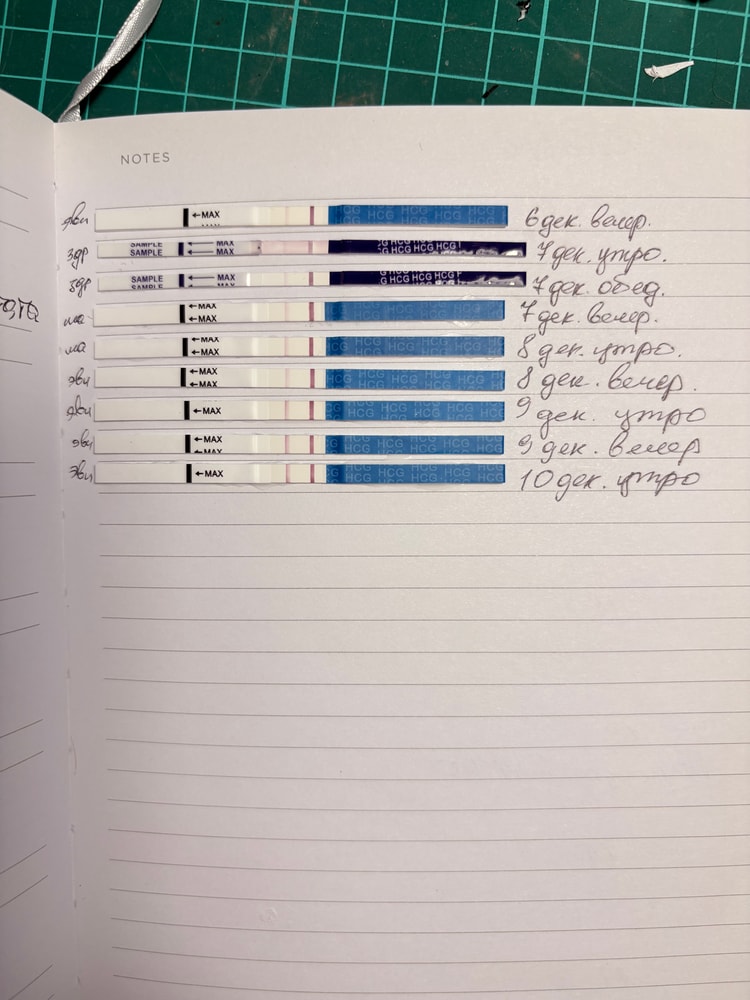 NOTES
эви ←MAX HCG HCG HCG HCG 6 дек. вечер.
здр SAMPLE MAX SAMPLE MAX HCG HCG HCG G HCG HCG HCG 7 дек. утро.
здр SAMPLE MAX HCG HCG HCG G HCG HCG HCG 7 дек. обед.
ма MAX ←MAX 7 дек. вечер.
ма MAX ←MAX 8 дек. утро.
эви ←MAX ←MAX 8 дек. вечер.
эви ←MAX HCG HCG HCG HCG 9 дек. утро
эви ←MAX ←MAX HCG HCG HCG 9 дек. вечер
эви ←MAX HCG HCG HCG 10 дек. утро